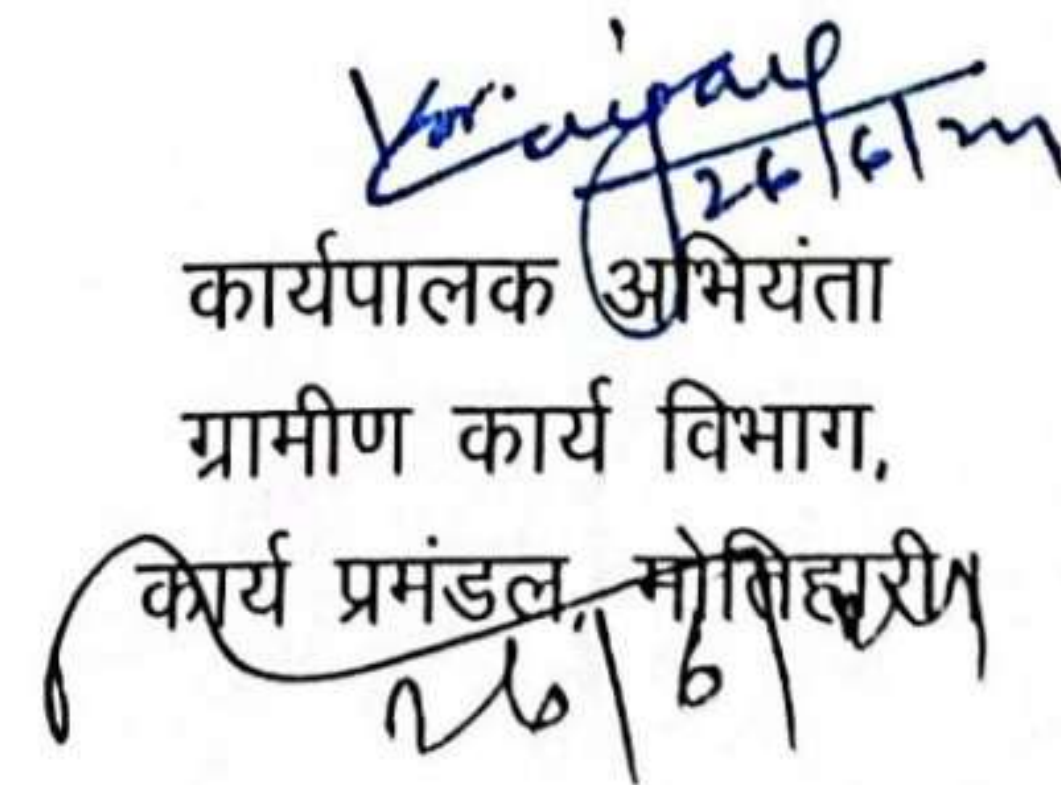 26/6/
कार्यपालक अभियंता
ग्रामीण कार्य विभाग,
कार्य प्रमंडल, मोतिहारी।
26/6/